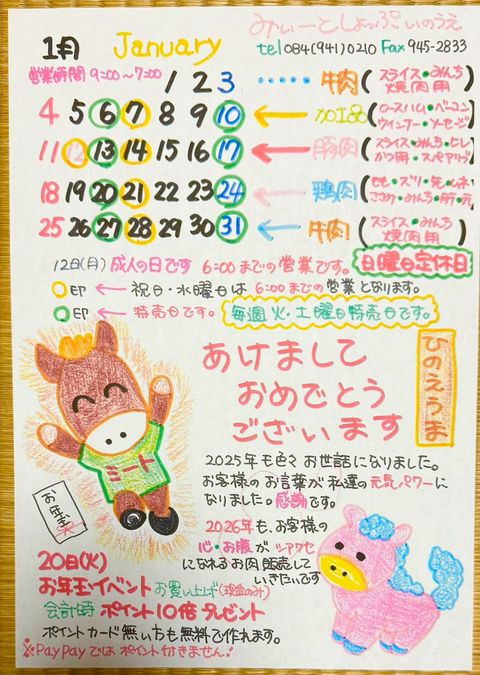 みぃーとしょっぷ いのうえ
1月 January tel 084(941)0210 Fax 945-2833
営業時間 9:00〜7:00
1 2 3 ・・・・・ 牛肉(スライス・みんち 焼肉用)
4 5 6 7 8 9 10 ← 加工品(ロースハム・ベーコン ウインナー・ソーセージ)
11 12 13 14 15 16 17 ← 豚肉(スライス・みんち・ヒレ かつ用・スペアリブ)
18 19 20 21 22 23 24 ← 鶏肉(もも・ズリ・
ささみ・みんち・
25 26 27 28 29 30 31 ← 牛肉(スライス・みんち 焼肉用)
12日(月) 成人の日です 6:00までの営業です。 日曜日定休日
○印 ← 祝日・水曜日は 6:00までの営業となります。
○印 ← 特売日です。 毎週火・土曜日特売日です。
あけまして
おめでとう
ございます
ひのえうま
ミート
お年玉
2025年も色々お世話になりました。
お客様のお言葉が私達の元気パワーに
なりました。感謝です。
2026年も、お客様の
心・お腹がシアワセ
になれるお肉販売して
いきたいです
20日(火)
お年玉イベント お買い上げ(現金のみ)
会計時 ポイント10倍プレゼント
ポイントカード無い方も無料で作れます。
※PayPayではポイント付きません!